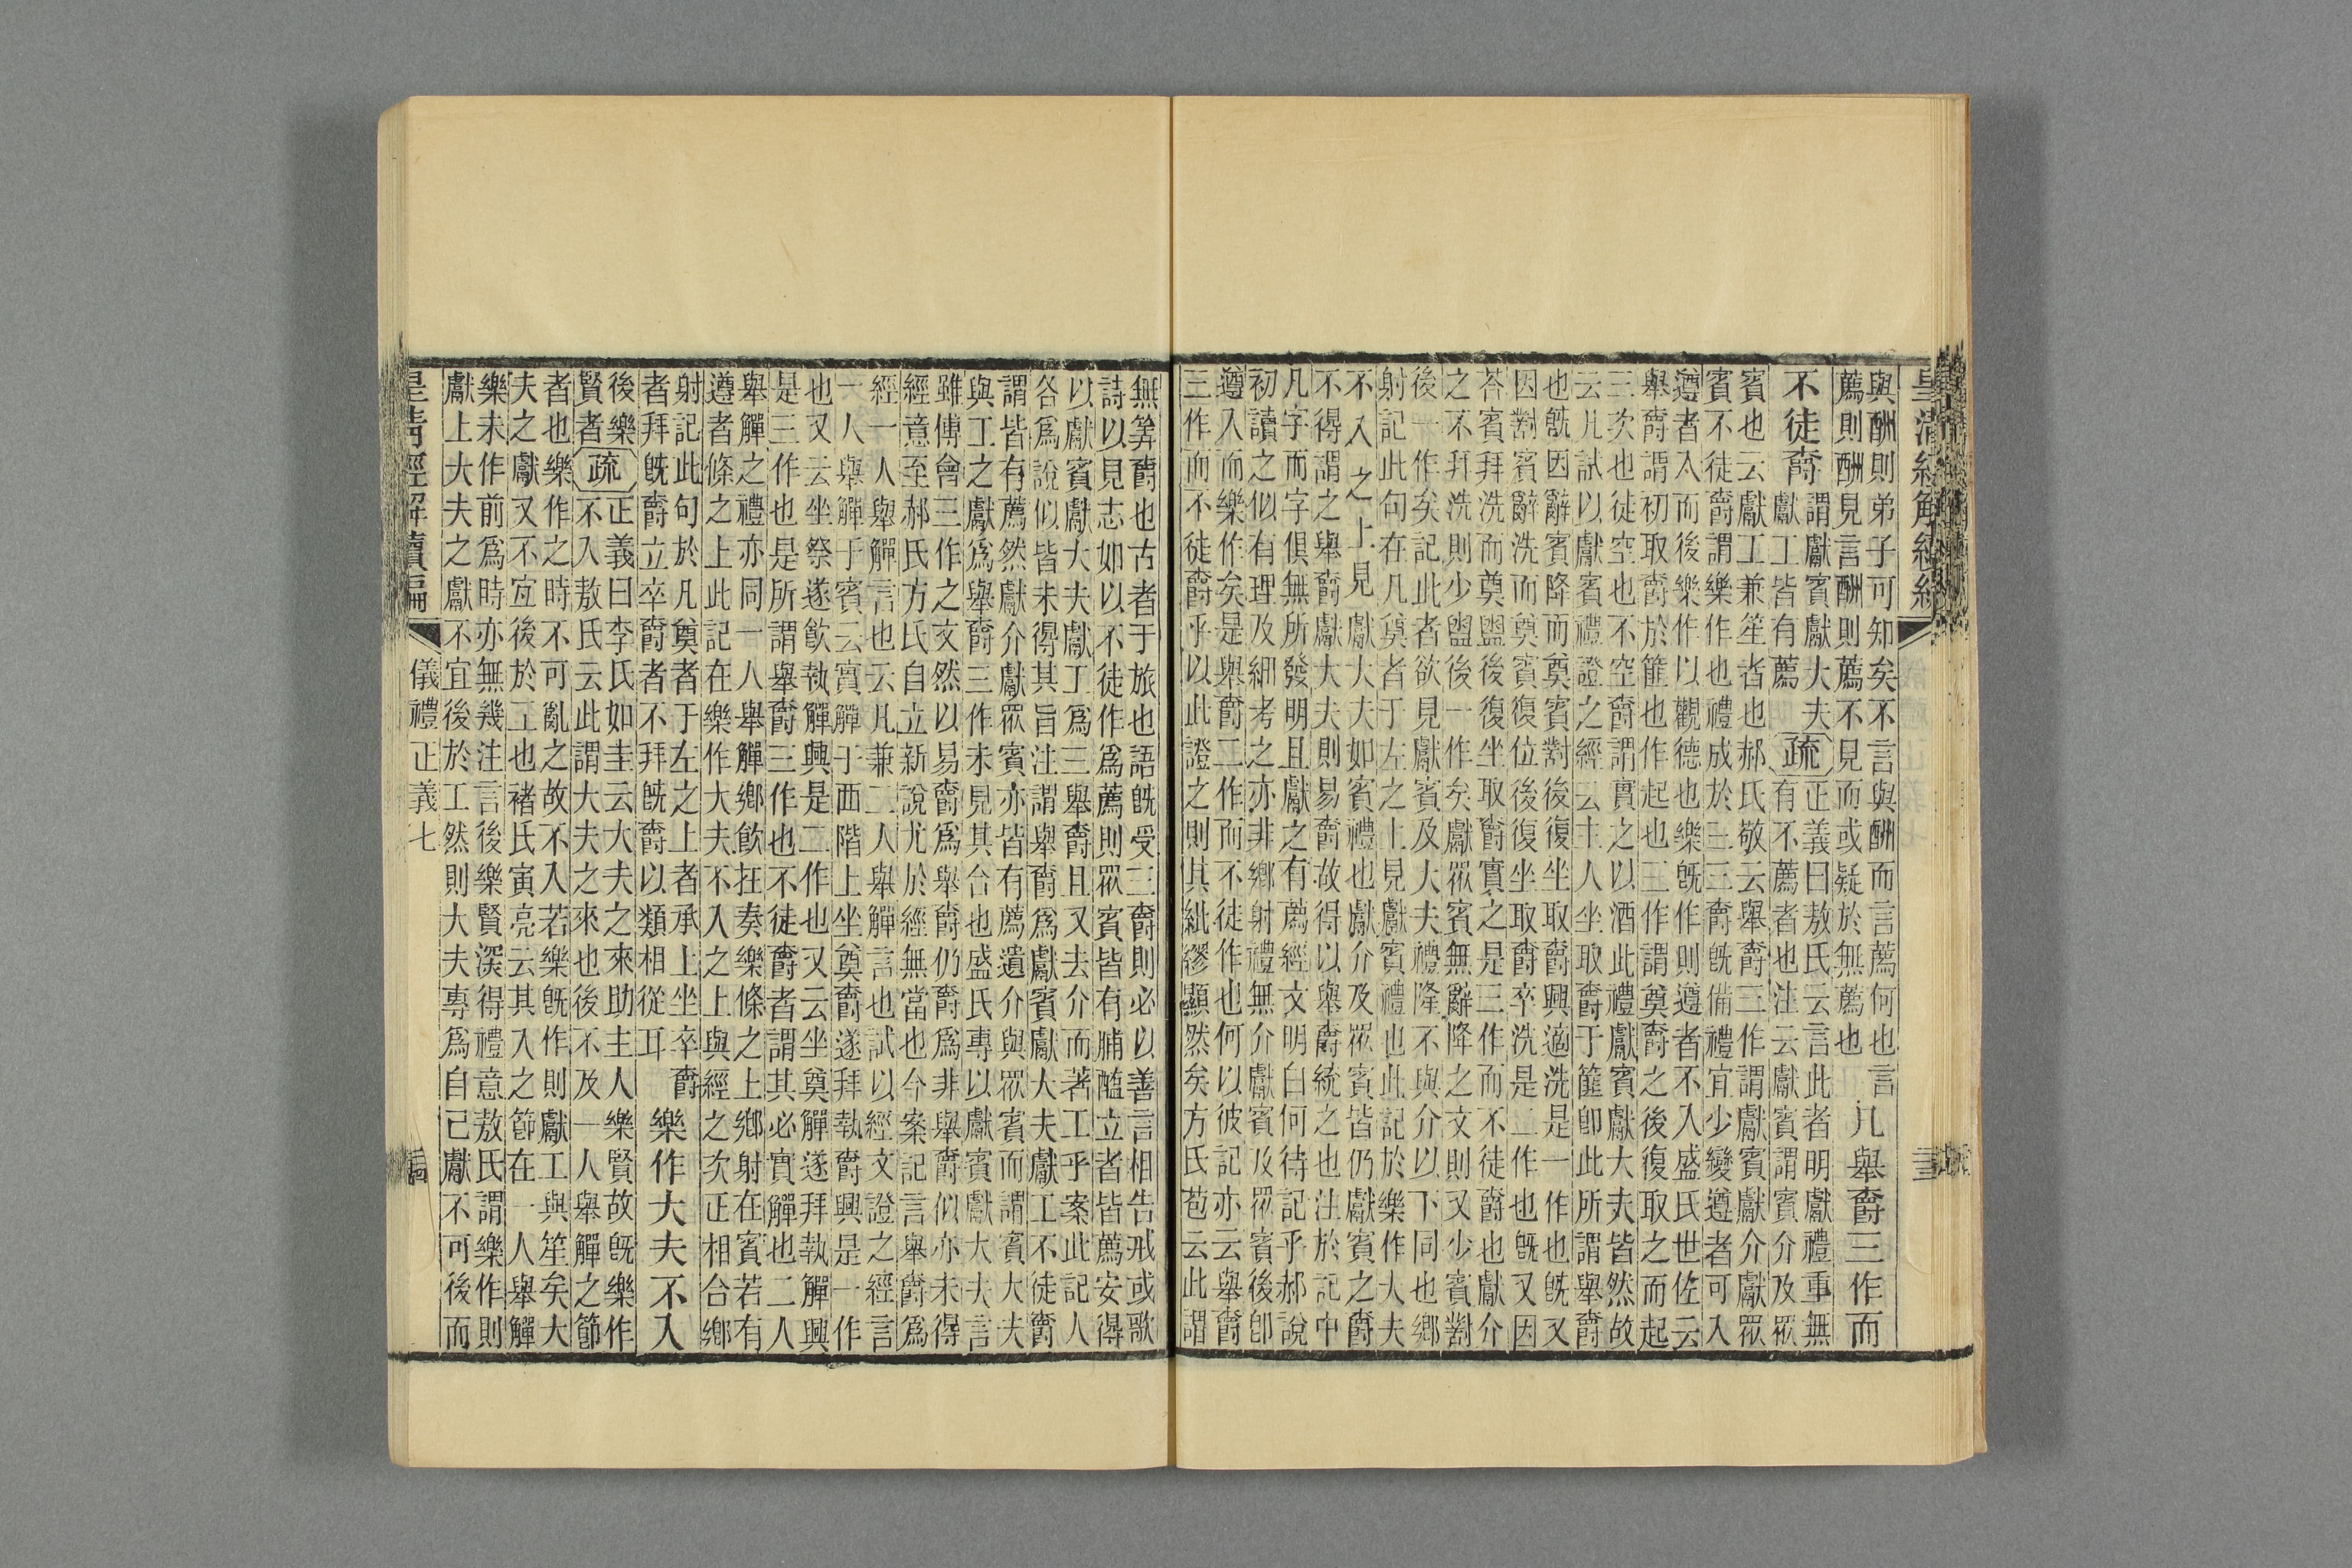 與酬則弟子可知矣不言與酬而言薦何也言
薦則酬見言酬則薦不見而或疑於無薦也
凡舉奠三作而
不徒爵
謂獻賓獻大夫
獻工皆有薦
疏
正義曰敖氏云言此者明獻禮重無
有不薦者也注云獻賓謂賓介及眾
賓也云獻工兼笙者也郝氏敬云舉爵三作謂獻賓獻介獻眾
賓不徒爵謂樂作也禮成於三三爵既備禮宜少變遵者可入
遵者入而後樂作以觀德也樂既作則遵者不入盛氏世佐云
舉爵謂初取爵於篚也作起也三作謂奠爵之後復取之而起
三次也徒空也不空爵謂實之以酒此禮獻賓獻大夫皆然故
云凡試以獻賓禮證之經云主人坐取爵于篚卽此所謂舉爵
也既因辭賓降而奠賓對後復坐取爵興適洗是一作也既又
因對賓辭洗而奠賓復位後復坐取爵卒洗是二作也既又因
荅賓拜洗而奠盥後復坐取爵實之是三作而不徒爵也獻介
之不拜洗則少盥後一作矣獻眾賓無辭降之文則又少賓對
後一作矣記此者欲見獻賓及大夫禮隆不與介以下同也鄉
射記此句在凡奠者于左之上見獻賓禮也此記於樂作大夫
不入之上見獻大夫如賓禮也獻介及眾賓皆仍獻賓之爵
不得謂之舉爵獻大夫則易爵故得以舉爵統之也注於記中
凡字而字俱無所發明且獻之有薦經文明白何待記乎郝說
初讀之似有理及細考之亦非鄉射禮無介獻賓及眾賓後卽
遵入而樂作矣是舉爵二作而不徒作也何以彼記亦云舉爵
三作而不徒爵乎以此證之則其紕繆顯然矣方氏苞云此謂
無筭爵也古者于旅也語既受三爵則必以善言相告戒或歌
詩以見志如以不徒作爲薦則眾賓皆有脯醢立者皆薦安得
以獻賓獻大夫獻工爲三舉爵且又去介而著工乎案此記人
各爲說似皆未得其旨注謂舉爵爲獻賓獻大夫獻工不徒爵
謂皆有薦然獻介獻眾賓亦皆有薦遺介與眾賓而謂賓大夫
與工之獻爲舉爵三作未見其合也盛氏專以獻賓獻大夫言
雖傅會三作之文然以易爵爲舉爵仍爵爲非舉爵似亦未得
經意至郝氏方氏自立新說尤於經無當也今案記言舉爵爲
經一人舉觶言也云凡兼二人舉觶言也試以經文證之經言
一人舉觶于賓云實觶于西階上坐奠爵遂拜執爵興是一作
也又云坐祭遂飮執觶興是二作也又云坐奠觶遂拜執觶興
是三作也是所謂舉爵三作也不徒爵者謂其必實觶也二人
舉觶之禮亦同一人舉觶鄉飮在奏樂條之上鄉射在賓若有
遵者條之上此記在樂作大夫不入之上與經之次正相合鄉
射記此句於凡奠者于左之上者承上坐卒爵
者拜既爵立卒爵者不拜既爵以類相從耳
樂作大夫不入
後樂
賢者
疏
正義曰李氏如圭云大夫之來助主人樂賢故既樂作
不入敖氏云此謂大夫之來也後不及一人舉觶之節
者也樂作之時不可亂之故不入若樂既作則獻工與笙矣大
夫之獻又不宜後於工也褚氏寅亮云其入之節在一人舉觶
樂未作前爲時亦無幾注言後樂賢深得禮意敖氏謂樂作則
獻上大夫之獻不宜後於工然則大夫專爲自己獻不可後而
皇清經解續編
儀禮正義七